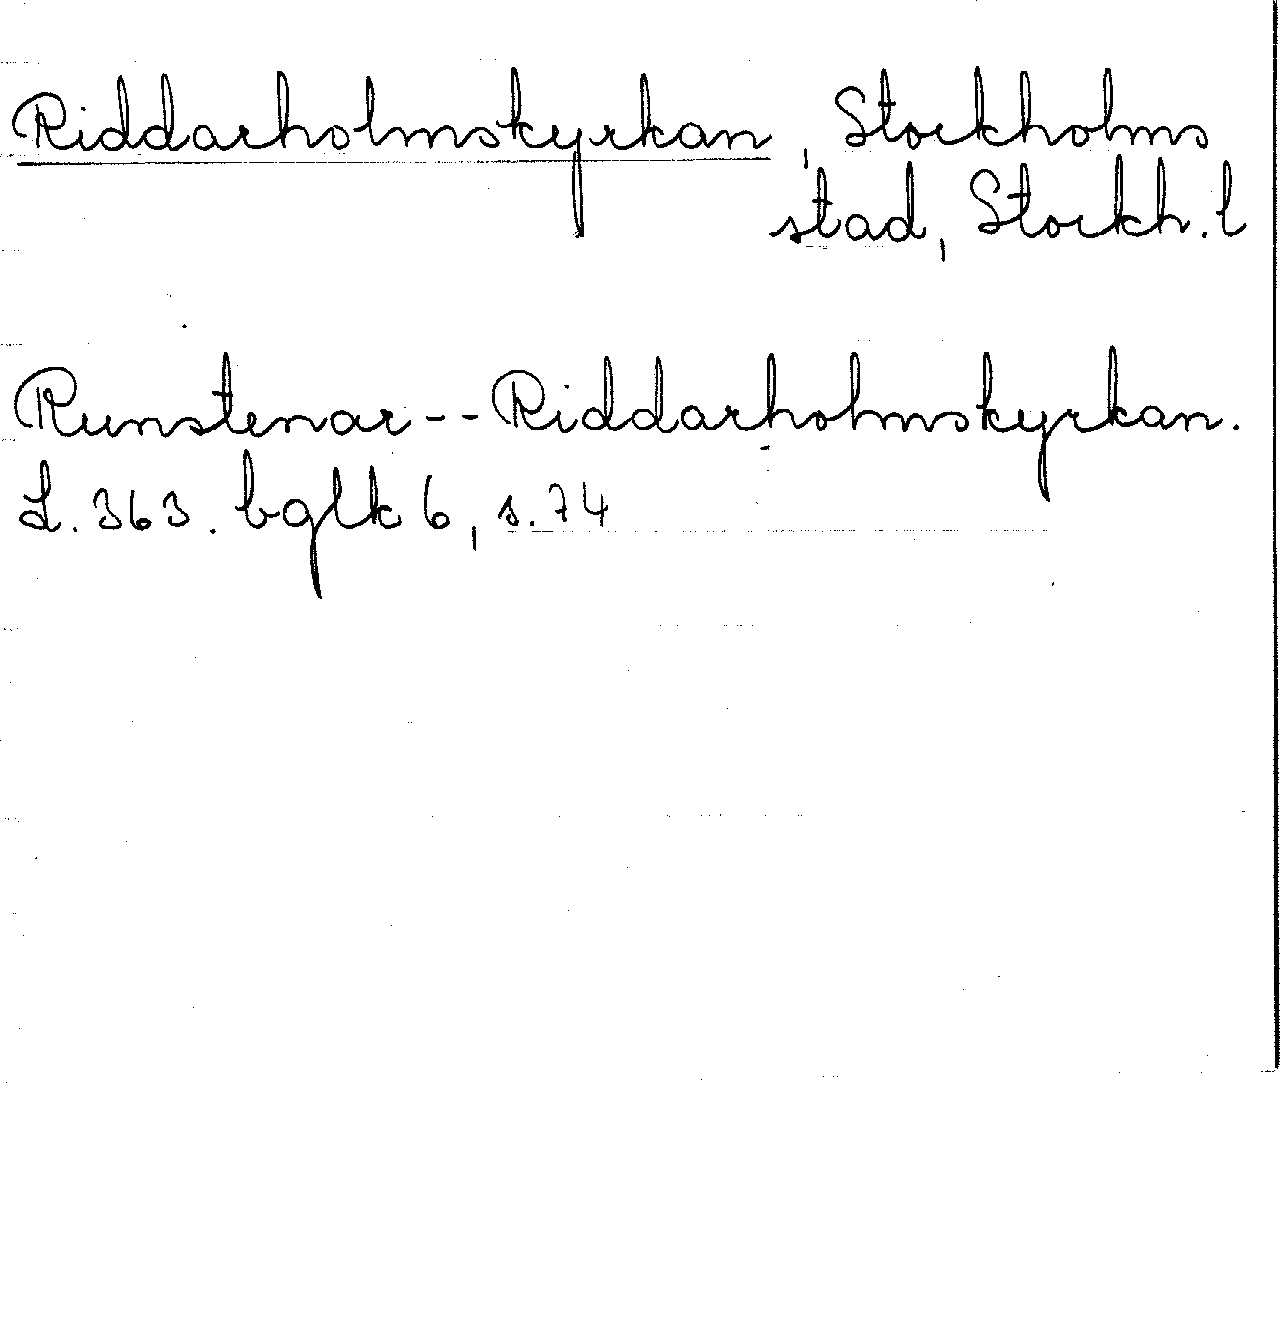 Riddarholmskyrkan, Stockholms
stad, Stockh. l
Runstenar -- Riddarholmskyrkan.
L. 363. bglk 6, s. 74